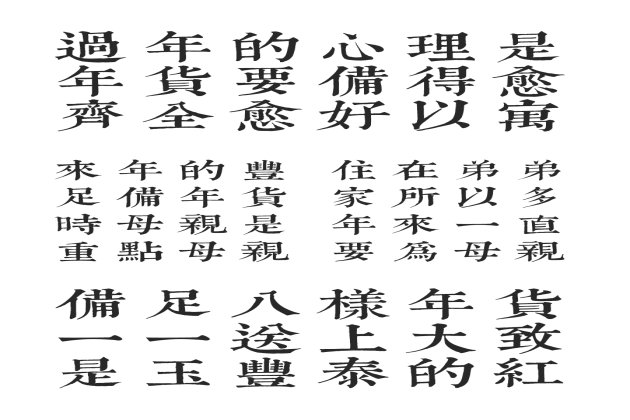 過年的心理是
年貨要備得愈
齊全愈好以寓
來年的豐
足備年貨
時母親是
重點母親
住在弟弟
家所以多
年來一直
要為母親
備足八樣年貨
一一送上大致
是玉豐泰的紅